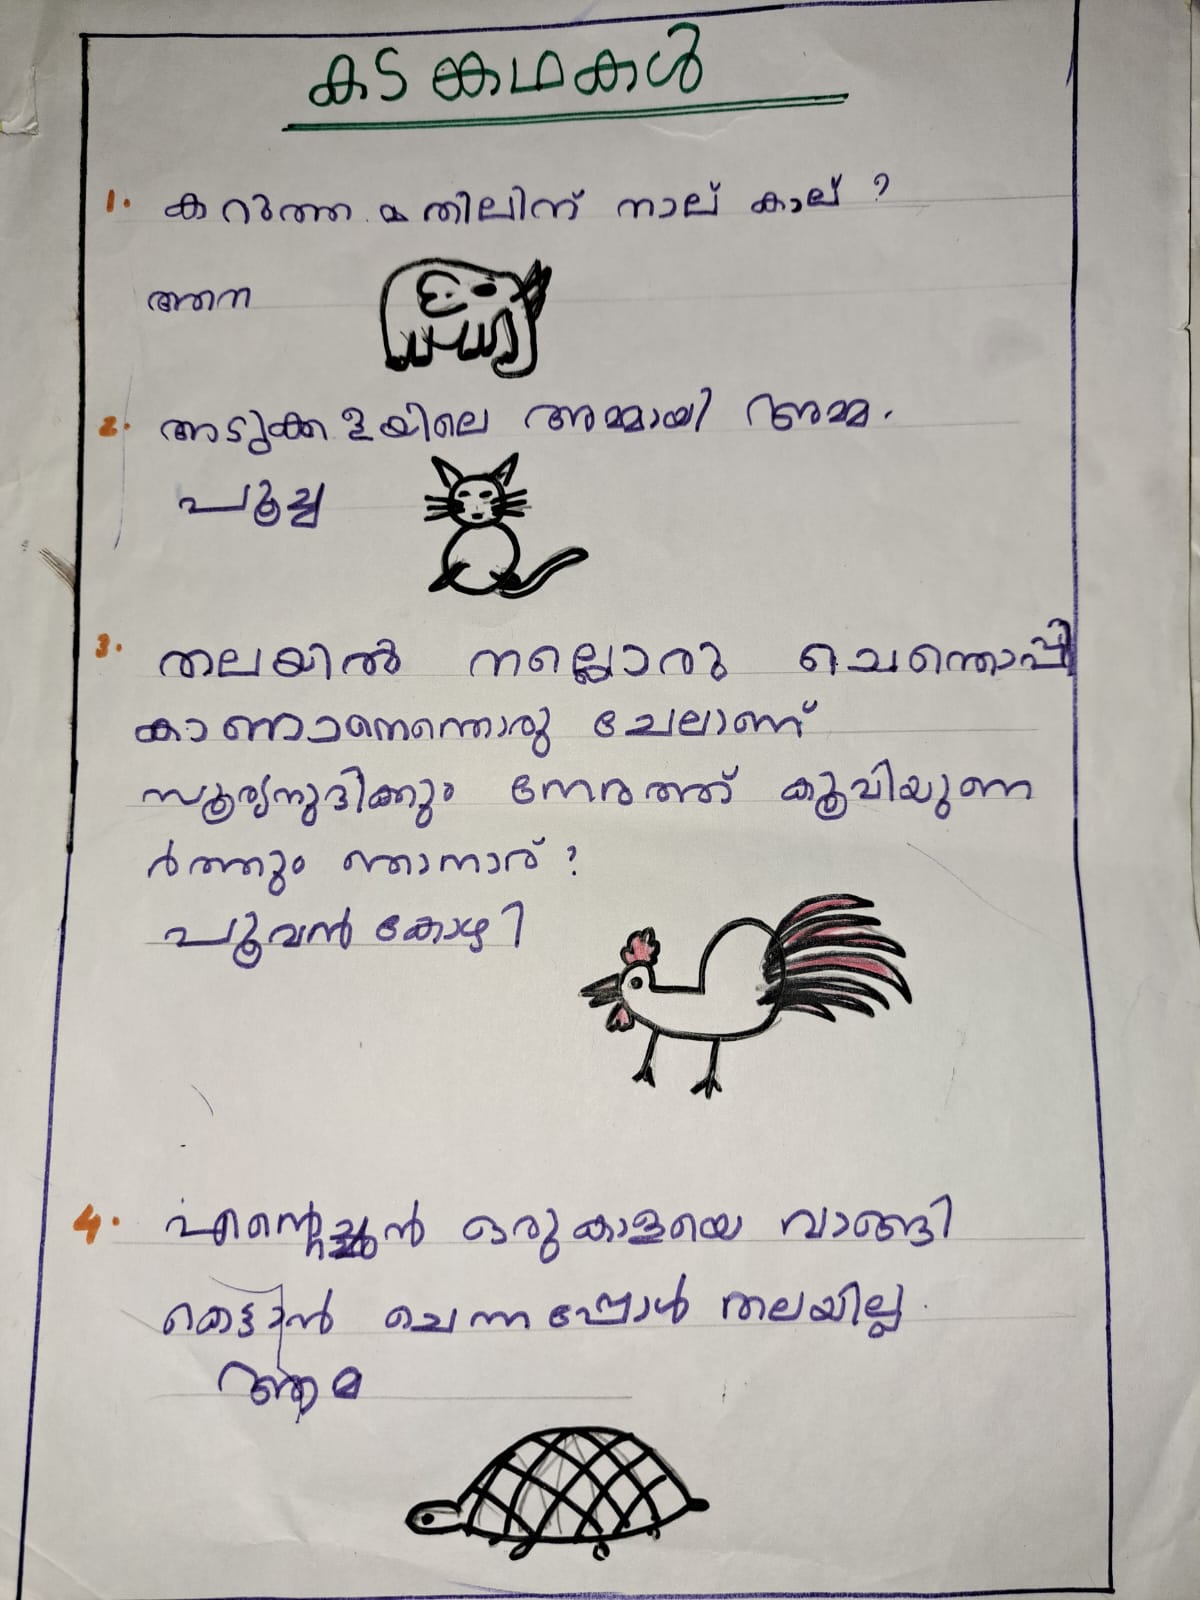 കടങ്കഥകൾ
1. കറുത്ത മതിലിന് നാല് കാല് ?
ആന
2. അടുക്കളയിലെ അമ്മായി അമ്മ.
പൂച്ച
3. തലയിൽ നല്ലൊരു ചെന്തൊപ്പി
കാണാനെന്തൊരു ചേലാണ്
സൂര്യനുദിക്കും നേരത്ത് കൂവിയുണ
ർത്തും ഞാനാര് ?
പൂവൻ കോഴി
4. എന്റെച്ഛൻ ഒരു കാളയെ വാങ്ങി
കെട്ടാൻ ചെന്നപ്പോൾ തലയില്ല.
ആമ